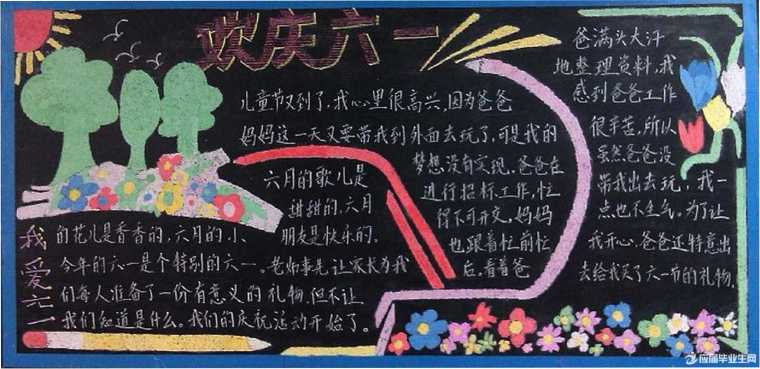 欢庆六一
儿童节又到了,我心里很高兴,因为爸爸
妈妈这一天又要带我到外面去玩了,可是我的
梦想没有实现。爸爸在
进行招标工作,忙
得不可开交,妈妈
也跟着忙前忙
后。看着爸
爸满头大汗
地整理资料,我
感到爸爸工作
很辛苦,所以
虽然爸爸没
带我出去玩,我一
点也不生气。为了让
我开心,爸爸还特意出
去给我买了六一节的礼物。
我爱六一
六月的歌儿是
甜甜的,六月
的花儿是香香的,六月的小
朋友是快乐的。
今年的六一是个特别的六一。老师事先让家长为我
们每人准备了一份有意义的礼物,但不让
我们知道是什么。我们的庆祝活动开始了。
应届毕业生网